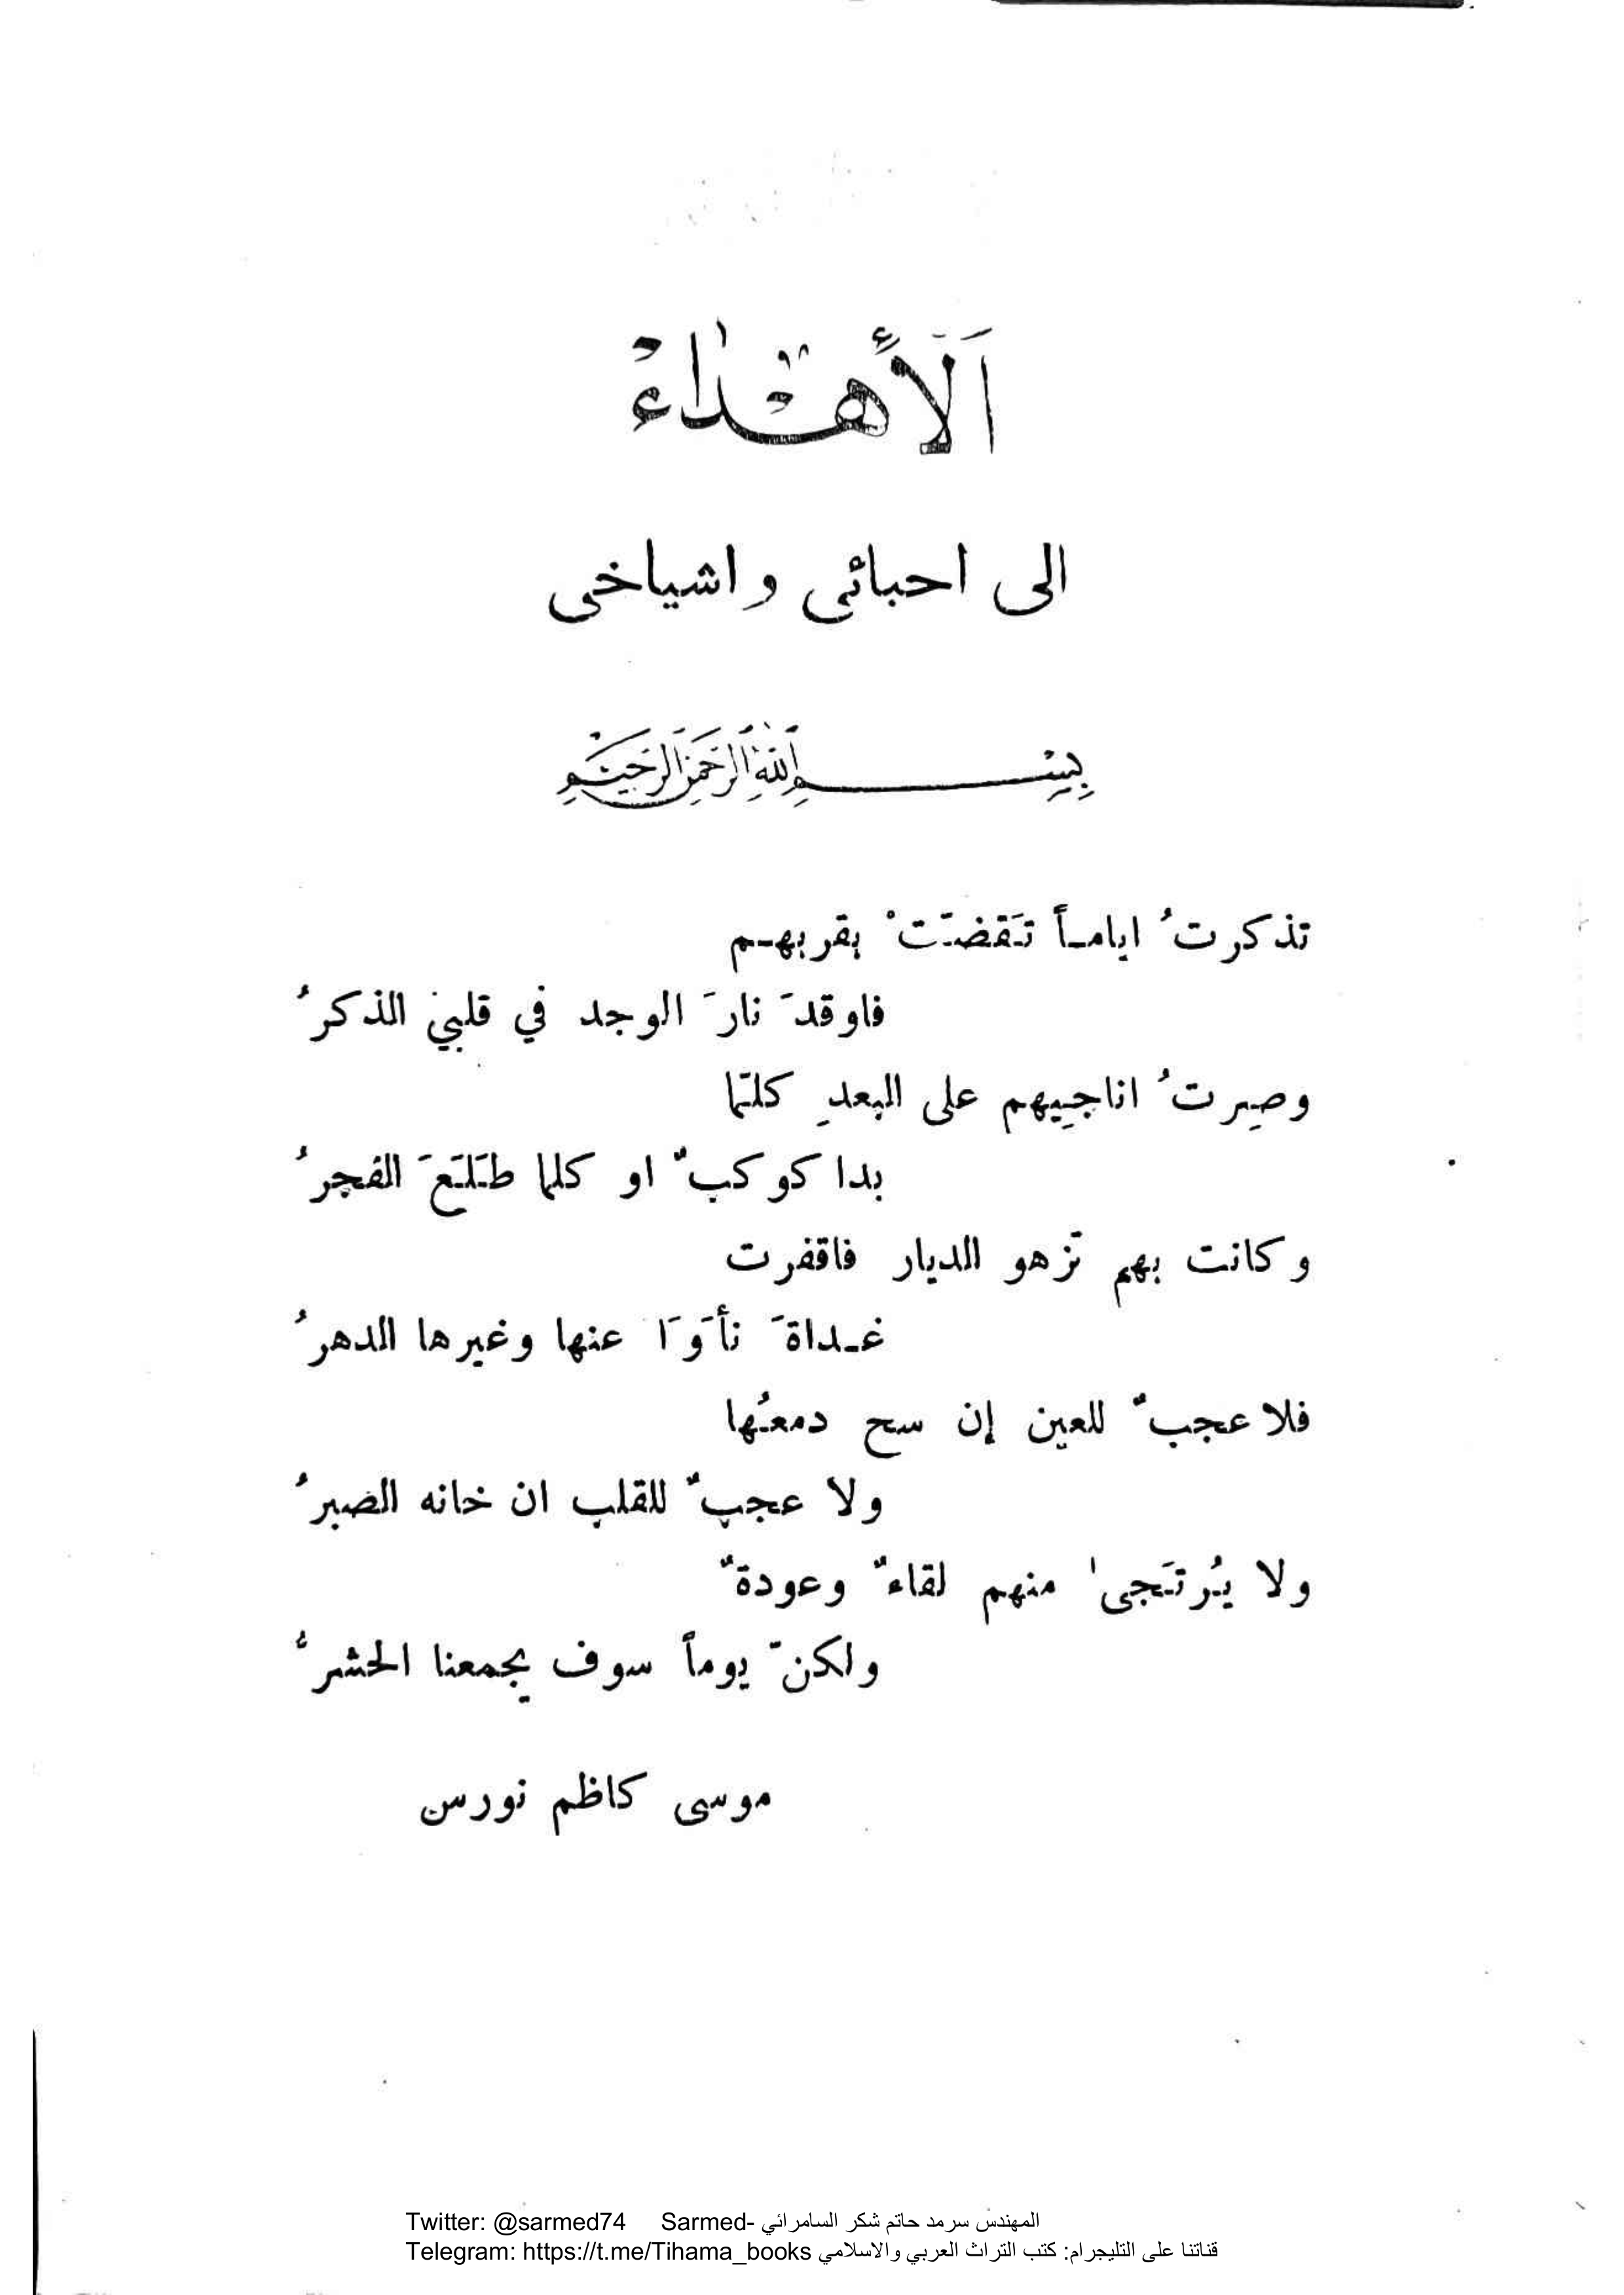 اَلأهْداء
الى احبائي واشياخي
بِسْمِ اللهِ الرَّحْمنِ الرَّحِيمِ
تذكرتُ اياماً تَقضّتْ بقربهم
فاوقدَ نارَ الوجد في قلبيَ الذكرُ
وصِرتُ اناجِيهم على البعدِ كلّما
بدا كوكبٌ او كلما طَلَعَ الفجرُ
وكانت بهم تزهو الديار فاقفرت
غداةَ نأَوَا عنها وغيرها الدهرُ
فلا عجبٌ للعين إن سح دمعُها
ولا عجبٌ للقلب ان خانه الصبرُ
ولا يُرتَجىٰ منهم لقاءٌ وعودةٌ
ولكنّ يوماً سوف يجمعنا الحشرُ
موسى كاظم نورس
Twitter: @sarmed74 Sarmed- المهندس سرمد حاتم شكر السامرائي
Telegram: https://t.me/Tihama_books قناتنا على التليجرام: كتب التراث العربي والاسلامي